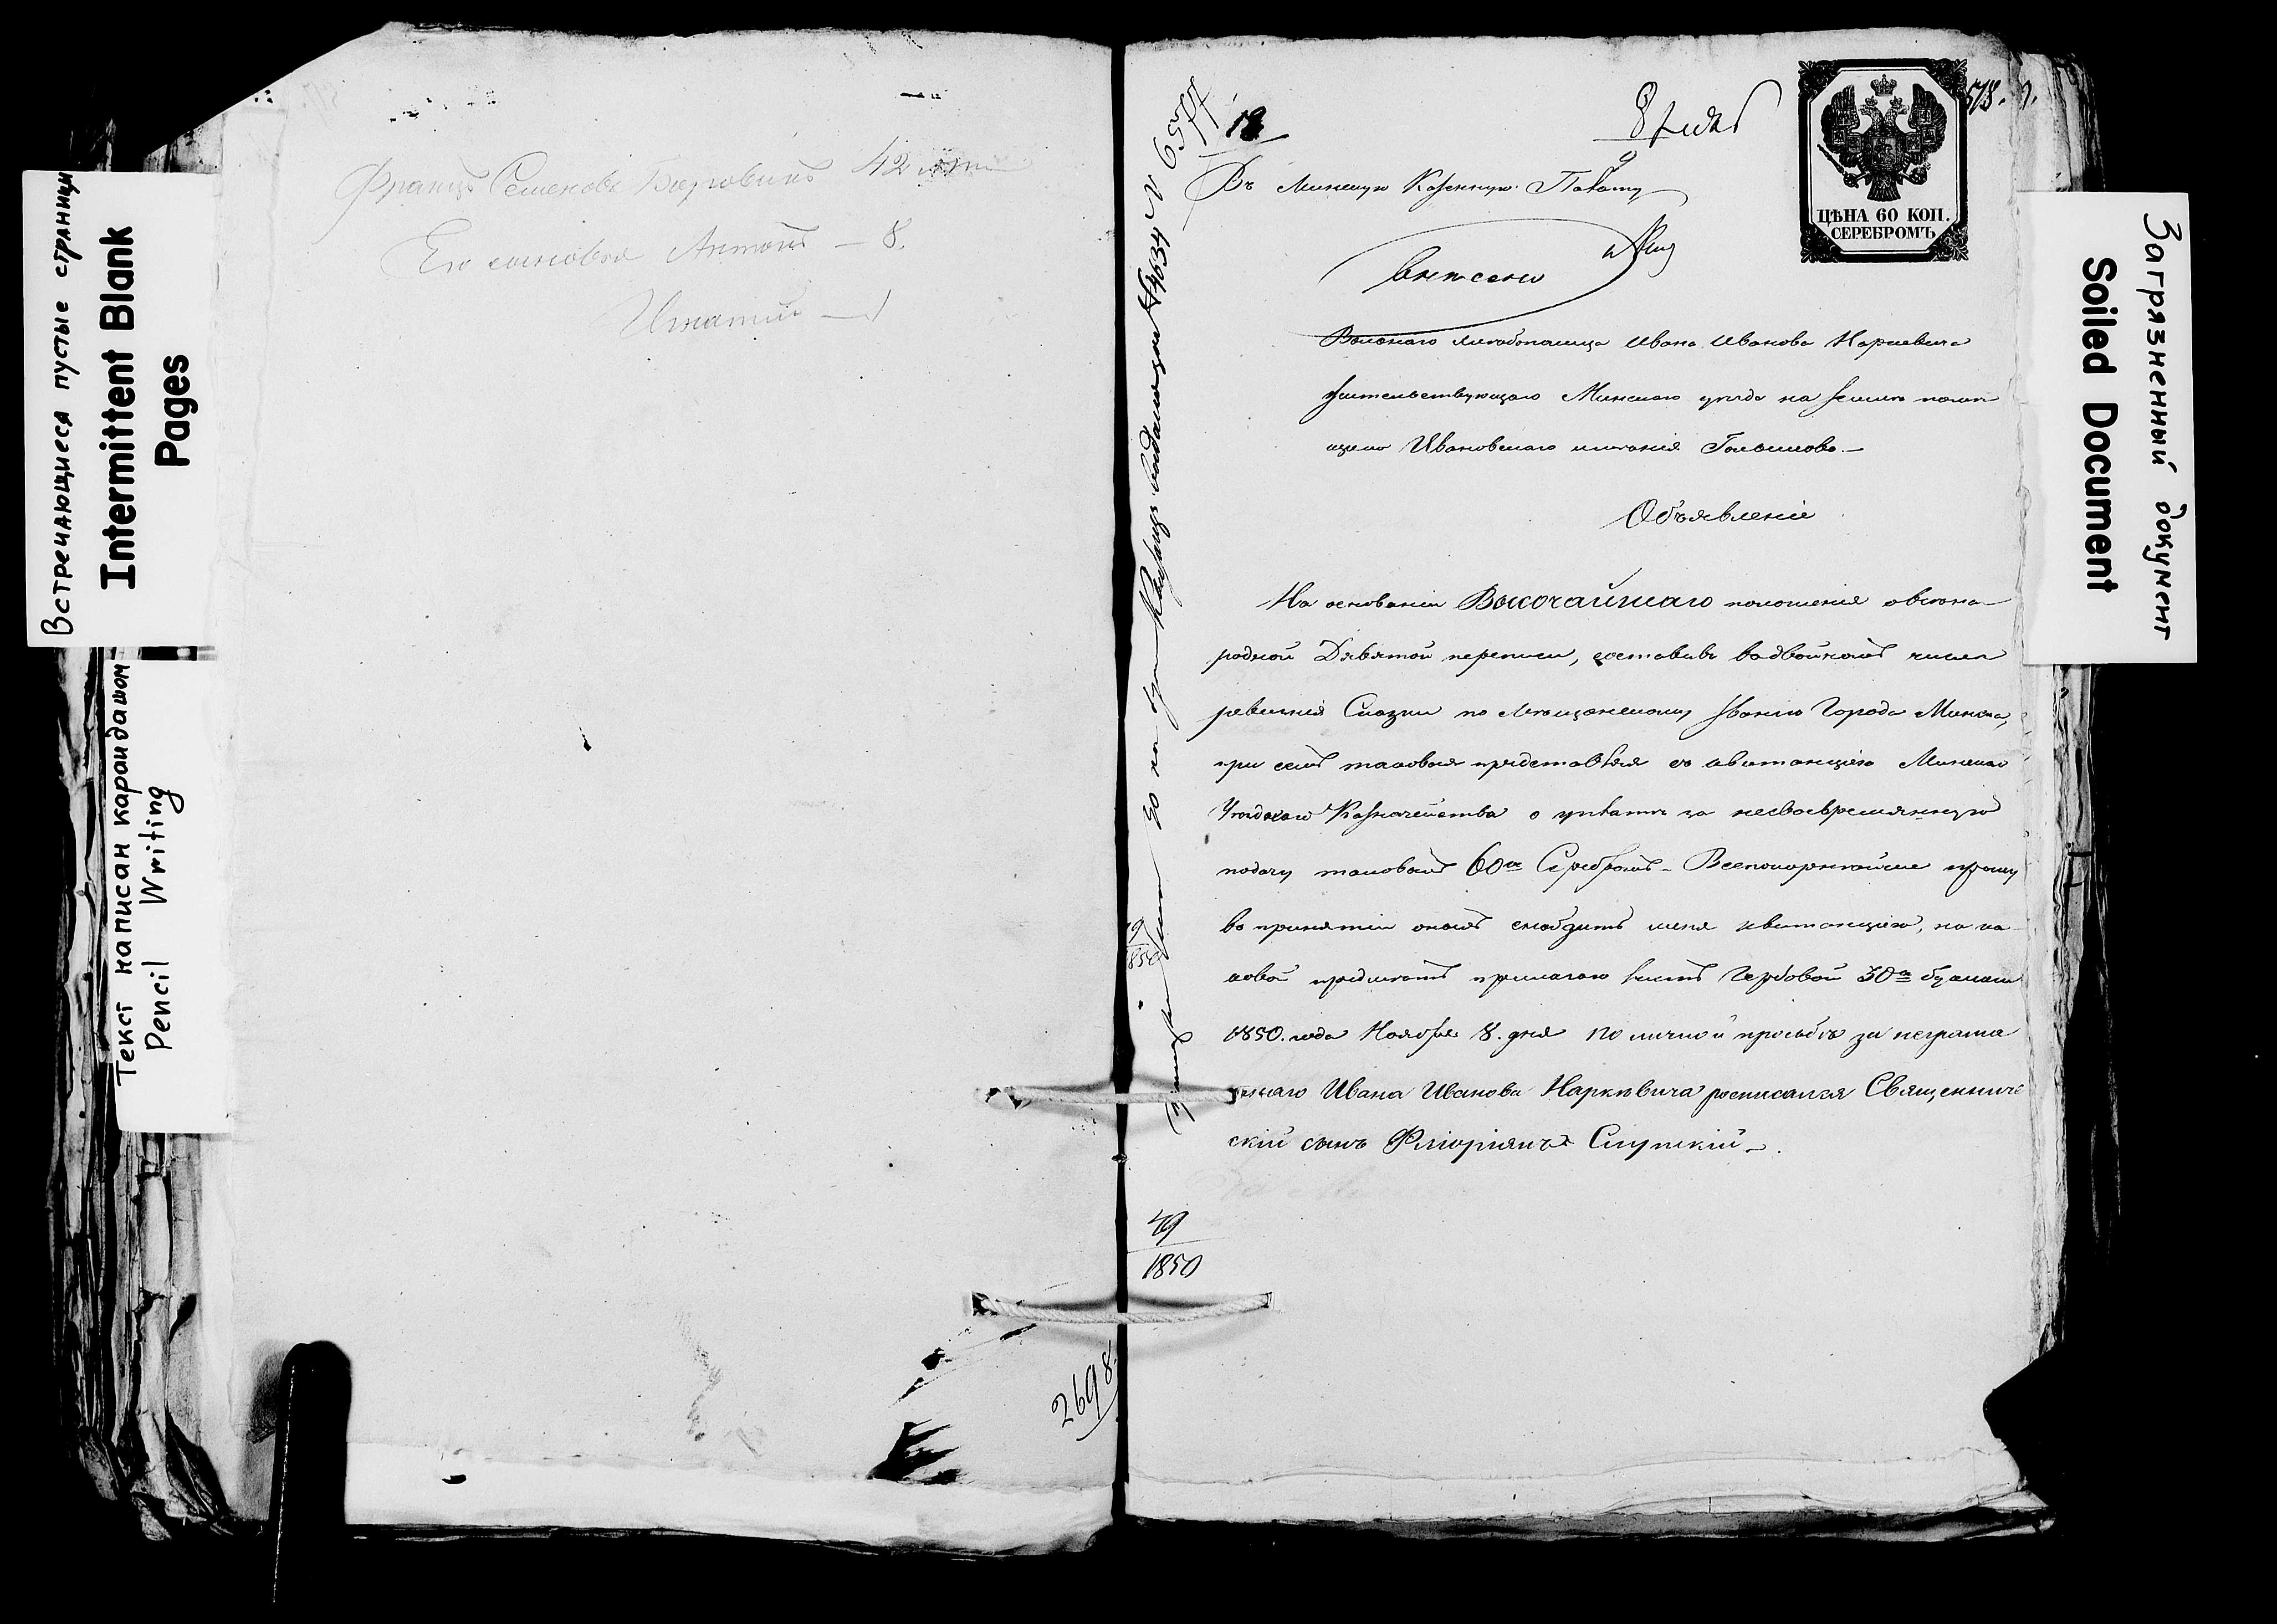 Встречающиеся пустые страницы
Intermittent Blank
Pages
Текст написан карандашом
Pencil Writing
Францъ Семеновъ 42
Его сыновья Антонъ — 8.
Игнатій — 1
2698
№ 6577
18
8 Нояб
518.
ЦѢНА 60 КОП.
СЕРЕБРОМЪ
Въ Минскую Казенную Палату
Вольнаго хлебопашца Ивана Иванова Наркевича
жительствующаго Минскаго уѣзда на землѣ помѣ
щика Ивановскаго имѣнія
Объявленіе
На основаніи Высочайшаго положенія о всена
родной Девятой переписи, составивъ въ двойномъ числѣ
ревизскія Сказки по Мѣщанскому званію Города Минска,
при семъ таковыя представляя съ квитанціею Минскаго
Уѣзднаго Казначейства о уплатѣ за несвоевременную
подачу таковыхъ 60 к Серебромъ - Всепокорнѣйше прошу
въ принятіи оныхъ снабдить меня квитанціею, на ка
ковой предметъ прилагаю листъ Гербовой 30 к бумаги
1850. года Ноября 8. дня По личной просьбѣ за неграмо
тнаго Ивана Иванова Наркевича росписался Священниче
скій сынъ Фліоріянъ Слупскій.
49
1850
Загрязненный документ
Soiled Document